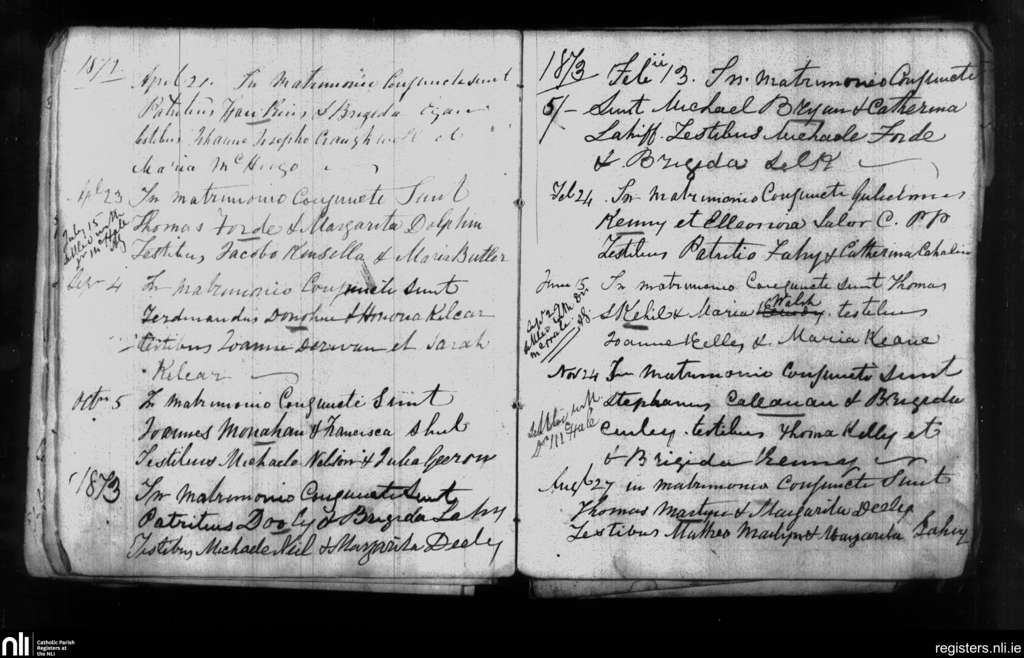 1872
April 21. In Matrimonio Conjuncti sunt
Patritius & Brigida Egan
testibus Johanne Josepho et
Maria McHugo
Apl 23 In matrimonio Conjuncti Sunt
July 15
settled with
Dr McHale
Thomas Forde & Margarita Dolphin
Testibus Jacobo Kinsella & Maria Butler
Sepr 4 In matrimonio Conjuncti sunt
Ferdinandus Donohue & Honora Kilcar
testibus Joanne Derwan et Sarah
Kilcar
Octr 5 In matrimonio Conjuncti Sunt
Joannes Monahan & Francisca Shul
Testibus Michaele Nelson & Julia
1873 In Matrimonio Conjuncti Sunt
Patritius Dooley & Brigida Lahy
Testibus Michaele Neil & Margarita Deely
1873 Febii 13. In Matrimonio Conjuncti
5/- Sunt Michael Bryan & Catherina
Lahiff. Testibus Michaele Forde
& Brigida Selk
Feb 24 In matrimonio Conjuncti Gulielmus
Kenny et Elleonora Lalor C. P P
Testibus Patritio Fahy & Catherina
June 5. In matrimonio Conjuncti sunt Thomas
Sepr 29
settled with Dr
Skehil & Maria Walsh testibus
Joanne Kelley & Maria Keane
Nov 24 In Matrimonio Conjuncti Sunt
Settled with
Dr McHale
Stephanus Callanan & Brigida
Curley. testibus Thoma Kelly et
& Brigida Kenney
Augt 27 in matrimonio Conjuncti Sunt
Thomas Martyn & Margarita Deely
Testibus Matheo Martyn & Margarita Lahy
nli
Catholic Parish
Registers at
the NLI
registers.nli.ie